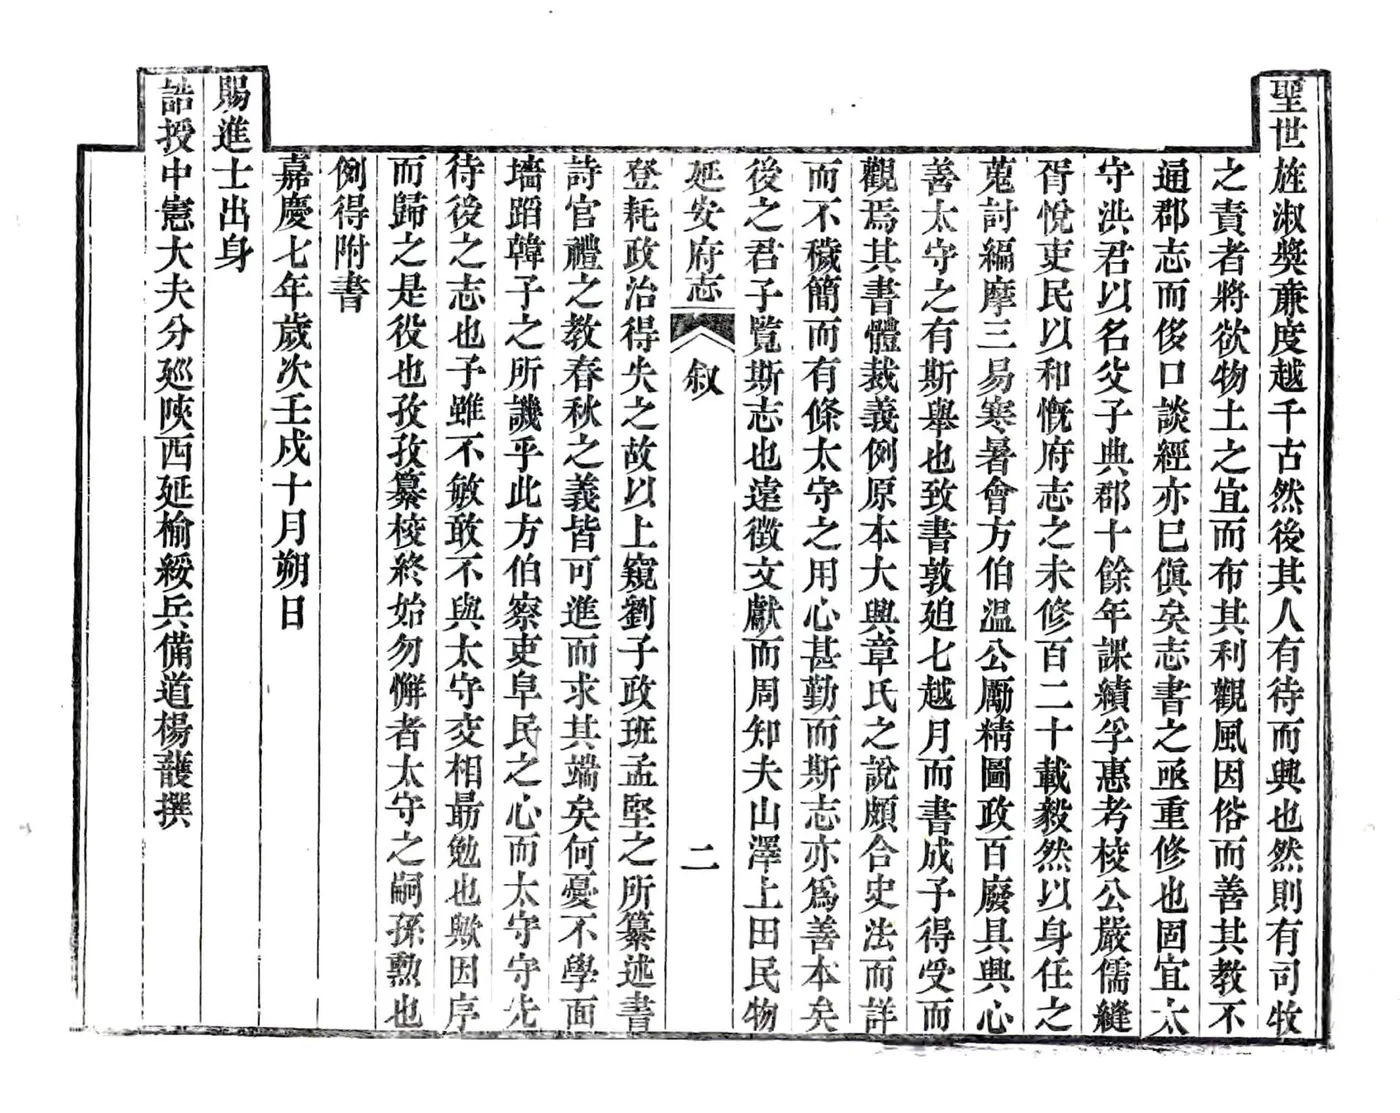 聖世旌淑獎亷度越千古然後其人有待而興也然則有司牧
之責者將欲物土之宜而布其利觀風因俗而善其教不
通郡志而侈口談經亦已傎矣志書之亟重修也固宜太
守洪君以名父子典郡十餘年課績孚惠考校公嚴儒縫
胥悅吏民以和慨府志之未修百二十載毅然以身任之
蒐討編摩三易寒暑會方伯溫公勵精圖政百廢具興心
善太守之有斯舉也致書敦廹七越月而書成予得受而
觀焉其書體裁義例原本大興章氏之說頗合史法而詳
而不穢簡而有條太守之用心甚勤而斯志亦爲善本矣
後之君子覽斯志也遠徵文獻而周知夫山澤上田民物
延安府志
敘
二
登耗政治得失之故以上窺劉子政班孟堅之所纂述書
詩官禮之教春秋之義皆可進而求其端矣何憂不學面
墻蹈韓子之所譏乎此方伯察吏阜民之心而太守守先
待後之志也予雖不敏敢不與太守交相勗勉也歟因序
而歸之是役也孜孜纂校終始勿懈者太守之嗣孫勲也
例得附書
嘉慶七年歲次壬戌十月朔日
賜進士出身
誥授中憲大夫分廵陝西延榆綏兵備道楊頀撰